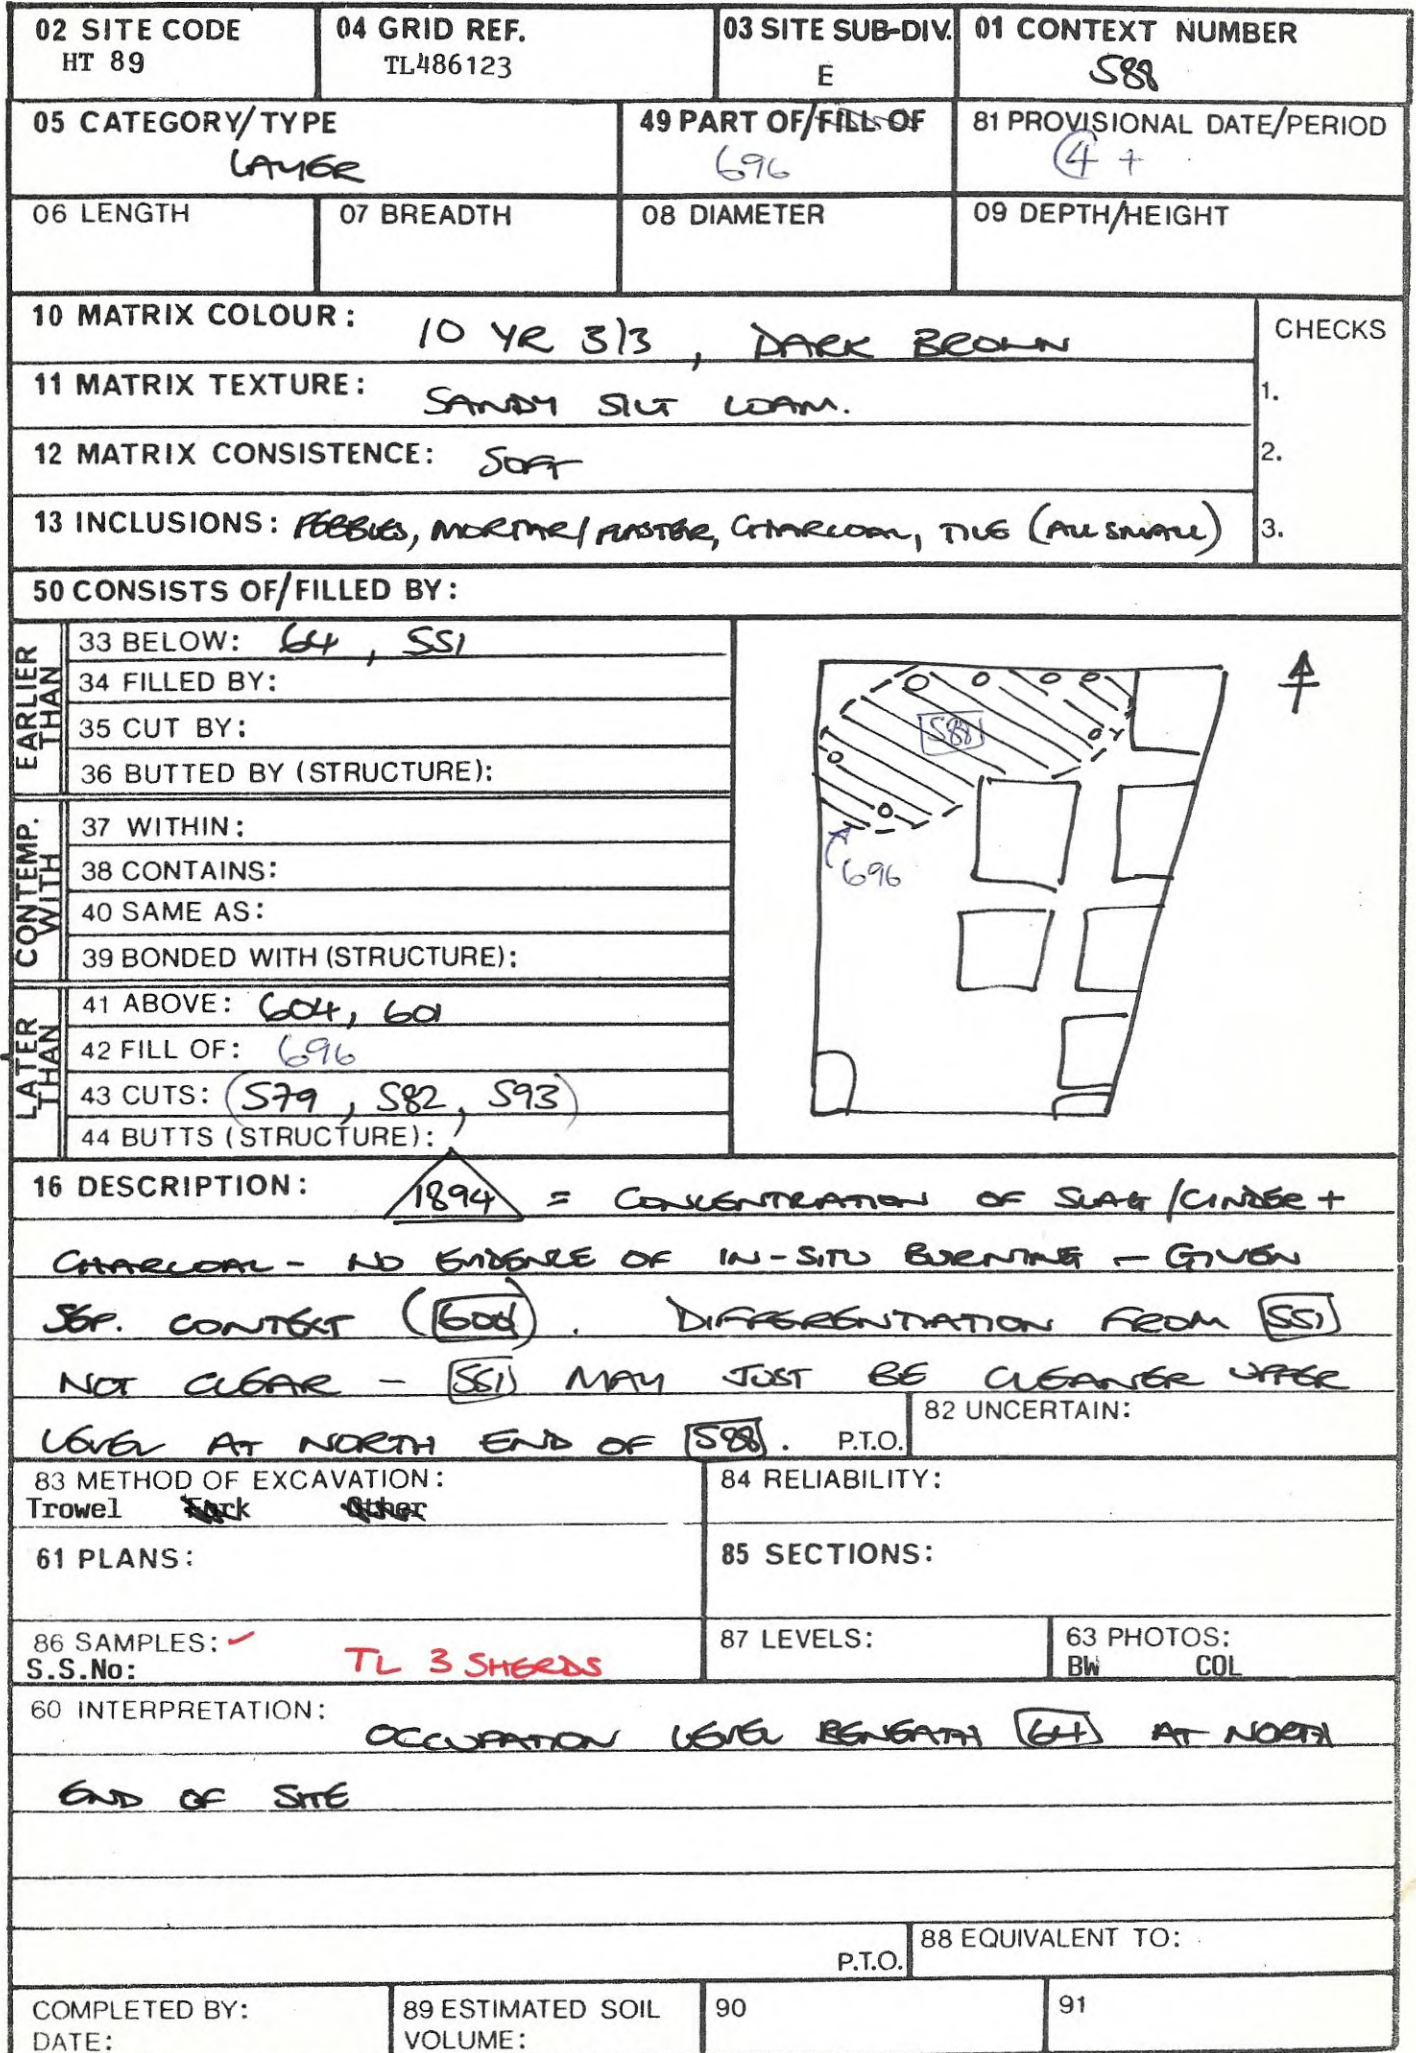 02 SITE CODE 04 GRID REF. 03 SITE SUB-DIV. 01 CONTEXT NUMBER
HT 89 TL486123 E 588
05 CATEGORY/TYPE 49 PART OF/FILL OF 81 PROVISIONAL DATE/PERIOD
LAYER 696 4 +
06 LENGTH 07 BREADTH 08 DIAMETER 09 DEPTH/HEIGHT
10 MATRIX COLOUR: 10 YR 3/3, DARK BROWN CHECKS
11 MATRIX TEXTURE: SANDY SILT LOAM. 1.
12 MATRIX CONSISTENCE: SOFT 2.
13 INCLUSIONS: PEBBLES, MORTAR/PLASTER, CHARCOAL, TILE (ALL SMALL) 3.
50 CONSISTS OF/FILLED BY:
EARLIER THAN
33 BELOW: 64, 551
34 FILLED BY:
35 CUT BY:
36 BUTTED BY (STRUCTURE):
CONTEMP. WITH
37 WITHIN:
38 CONTAINS:
40 SAME AS:
39 BONDED WITH (STRUCTURE):
LATER THAN
41 ABOVE: 604, 601
42 FILL OF: 696
43 CUTS: (579, 582, 593)
44 BUTTS (STRUCTURE):
588
696
16 DESCRIPTION: 1894 = CONCENTRATION OF SLAG/CINDER +
CHARCOAL - NO EVIDENCE OF IN-SITU BURNING - GIVEN
SEP. CONTEXT ( ). DIFFERENTIATION FROM 551
NOT CLEAR - 551 MAY JUST BE CLEANER UPPER
LEVEL AT NORTH END OF 588. P.T.O. 82 UNCERTAIN:
83 METHOD OF EXCAVATION: 84 RELIABILITY:
Trowel Fork Other
61 PLANS: 85 SECTIONS:
86 SAMPLES: ✓ 87 LEVELS: 63 PHOTOS:
S.S.No: TL 3 SHERDS BW COL
60 INTERPRETATION:
OCCUPATION LEVEL BENEATH 64 AT NORTH
END OF SITE
P.T.O. 88 EQUIVALENT TO:
COMPLETED BY: 89 ESTIMATED SOIL 90 91
DATE: VOLUME: